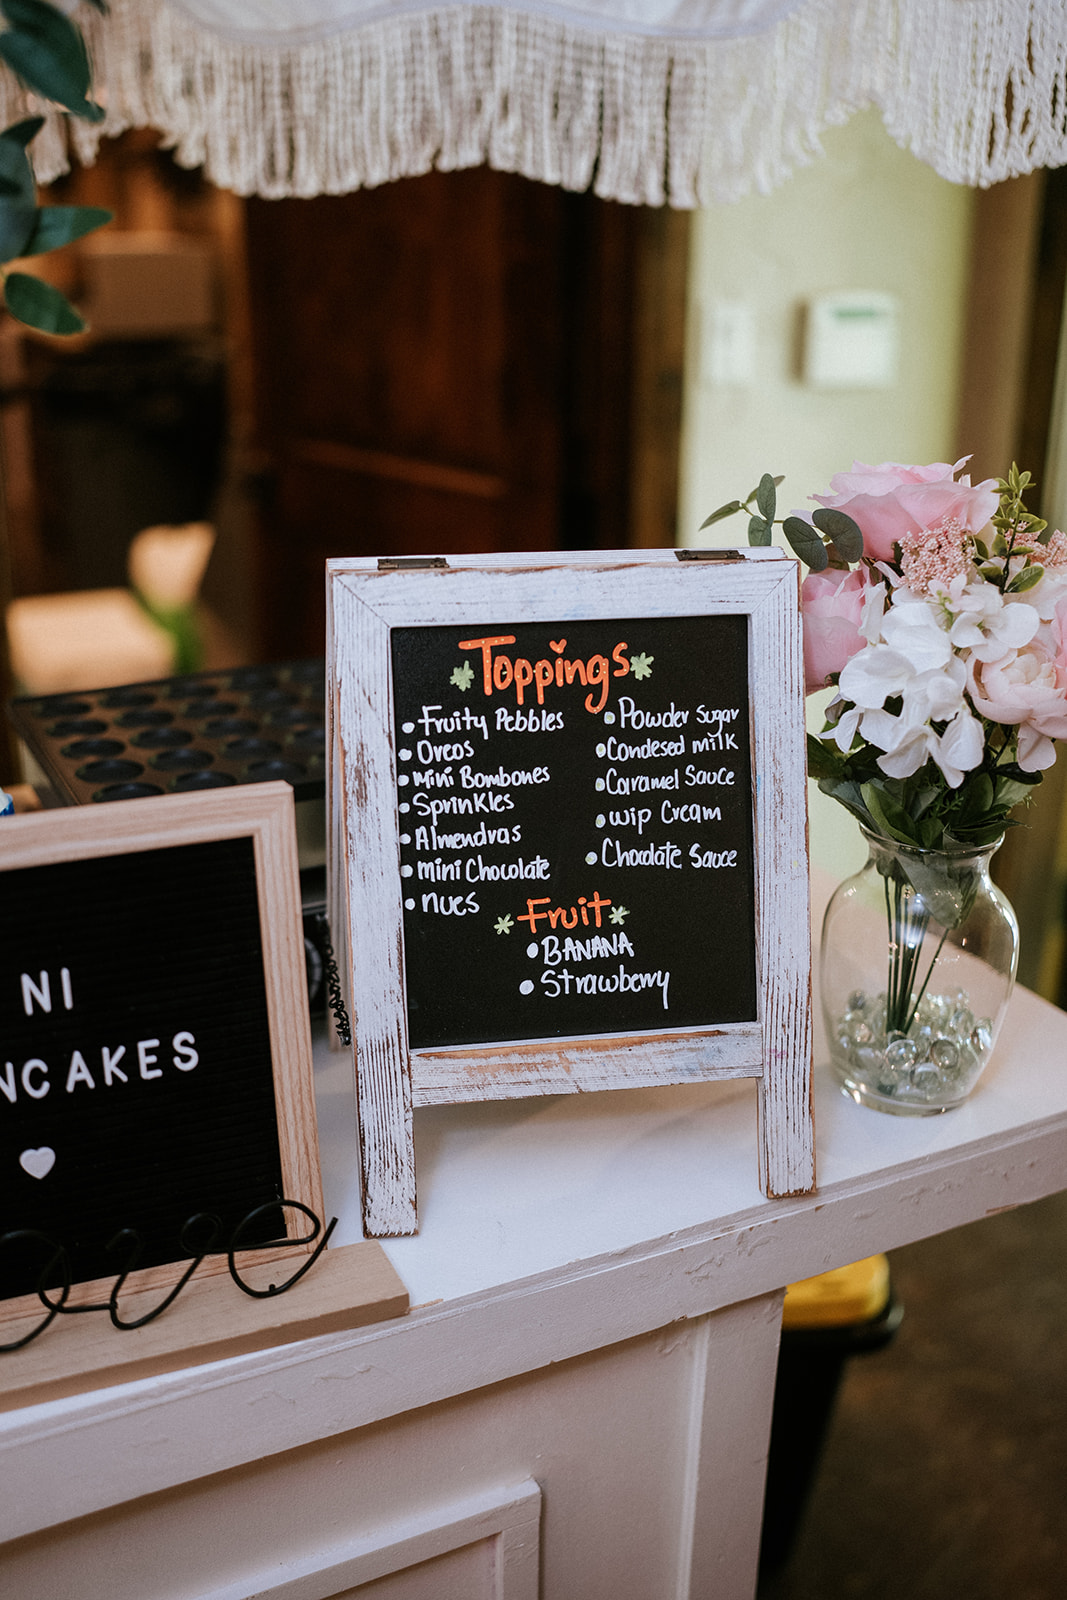 Toppings
Fruity Pebbles
Oreos
Mini Bombones
Sprinkles
Almendras
mini Chocolate
nues
Powder Sugar
Condesed milk
Caramel Sauce
wip Cream
Chocolate Sauce
Fruit
BANANA
Strawberry
NI
NCAKES